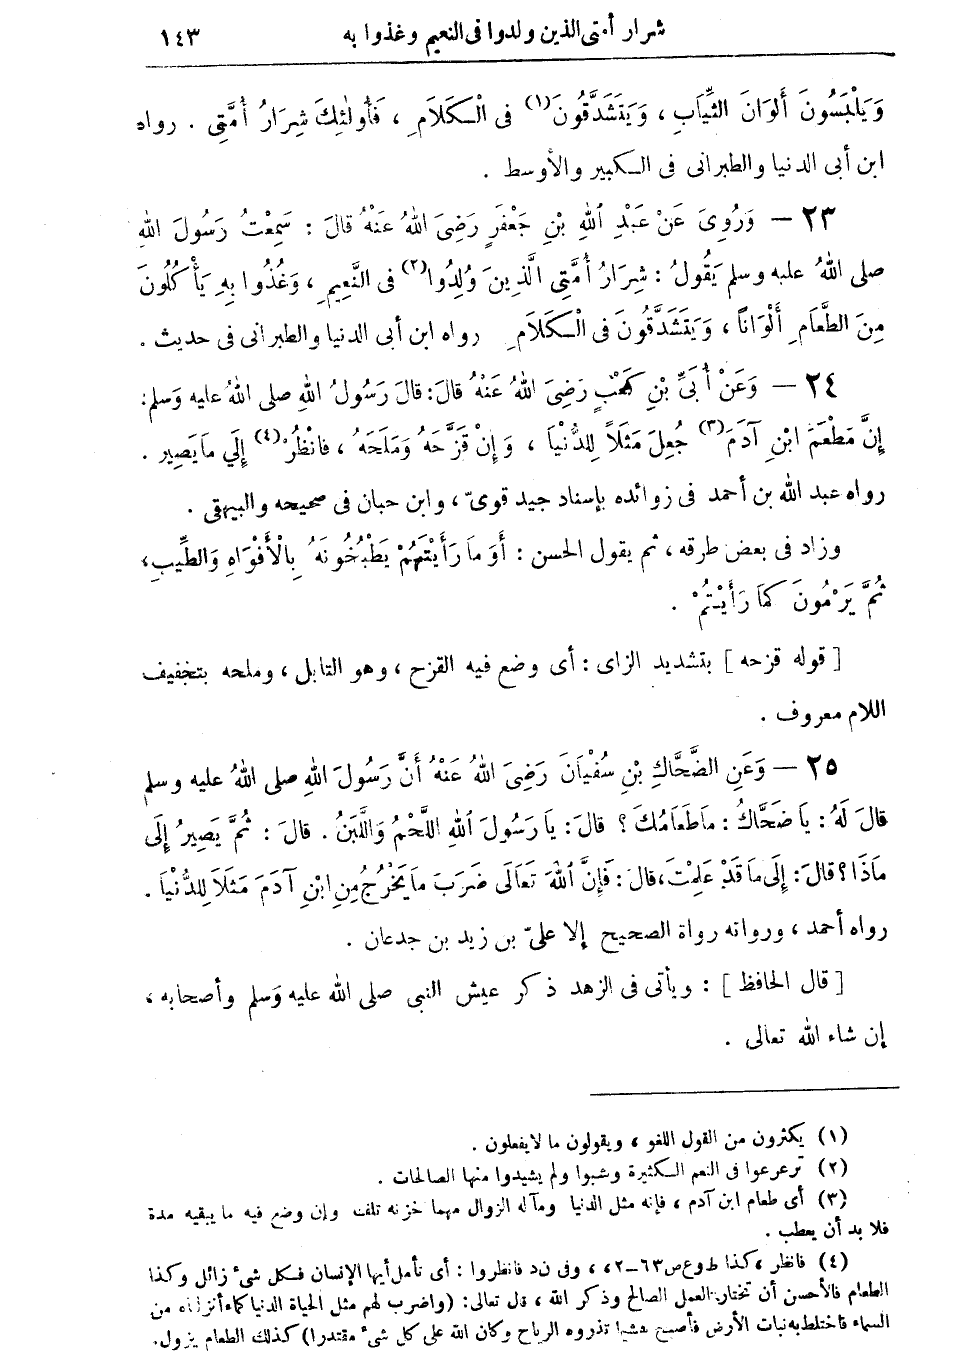 شرار أمتى الذين ولدوا فى النعيم وغذوا به ١٤٣
وَيَلْبَسُونَ أَلْوَانَ الثِّيَابِ ، وَيَتَشَدَّقُونَ(١) فى الْكَلَامِ ، فَأُولٰئِكَ شِرَارُ أُمَّتِى . رواه
ابن أبى الدنيا والطبرانى فى الكبير والأوسط .
٢٣ — وَرُوِىَ عَنْ عَبْدِ اللهِ بْنِ جَعْفَرٍ رَضِىَ اللهُ عَنْهُ قَالَ : سَمِعْتُ رَسُولَ اللهِ
صلى اللهُ عليه وسلم يَقُولُ : شِرَارُ أُمَّتِى الَّذِينَ وُلِدُوا(٢) فى النَّعِيمِ ، وَغُذُوا بِهِ يَأْكُلُونَ
مِنَ الطَّعَامِ أَلْوَانًا ، وَيَتَشَدَّقُونَ فى الْكَلَامِ رواه ابن أبى الدنيا والطبرانى فى حديث .
٢٤ — وَعَنْ أُبَىِّ بْنِ كَعْبٍ رَضِىَ اللهُ عَنْهُ قَالَ : قَالَ رَسُولُ اللهِ صلى اللهُ عليه وَسلم :
إِنَّ مَطْعَمَ ابْنِ آدَمَ(٣) جُعِلَ مَثَلًا لِلدُّنْيَا ، وَإِنْ قَزَّحَهُ وَمَلَحَهُ ، فَانْظُرْ(٤) إِلَي مَا يَصِير .
رواه عبد الله بن أحمد فى زوائده بإسناد جيد قوىّ ، وابن حبان فى صحيحه والبيهقى .
وزاد فى بعض طرقه ، ثم يقول الحسن : أَوَ مَا رَأَيْتَهُمْ يَطْبُخُونَهُ بِالْأَفْوَاهِ وَالطِّيبِ ،
ثُمَّ يَرْمُونَ كَمَا رَأَيْتُمْ .
[ قوله قزحه ] بتشديد الزاى : أى وضع فيه القزح ، وهو التابل ، وملحه بتخفيف
اللام معروف .
٢٥ — وَعَنِ الضَّحَّاكِ بْنِ سُفْيَانَ رَضِىَ اللهُ عَنْهُ أَنَّ رَسُولَ اللهِ صلى اللهُ عليه وسلم
قَالَ لَهُ : يَا ضَحَّاكُ : مَا طَعَامُكَ ؟ قَالَ : يَا رَسُولَ اللهِ اللَّحْمُ وَاللَّبَنُ . قَالَ : ثُمَّ يَصِيرُ إِلَى
مَاذَا ؟ قَالَ : إِلَى مَا قَدْ عَلِمْتَ ، قَالَ : فَإِنَّ اللهَ تَعَالَى ضَرَبَ مَا يَخْرُجُ مِنِ ابْنِ آدَمَ مَثَلًا لِلدُّنْيَا .
رواه أحمد ، ورواته رواة الصحيح إلا علىّ بن زيد بن جدعان .
[ قال الحافظ ] : ويأتى فى الزهد ذكر عيش النبى صلى الله عليه وَسلم وأصحابه ،
إن شاء الله تعالى .
(١) يكثرون من القول اللغو ، ويقولون ما لا يفعلون .
(٢) ترعرعوا فى النعم الكثيرة وشبوا ولم يشيدوا منها الصالحات .
(٣) أى طعام ابن آدم ، فإنه مثل الدنيا ومآله الزوال مهما خزنه تلف وإن وضع فيه ما يبقيه مدة
فلا بد أن يعطب .
(٤) فانظر ، كذا ط وع ص ٦٣ــ٢ ، وفى ن د فانظروا : أى تأمل أيها الإنسان فكل شىء زائل وكذا
الطعام فالأحسن أن تختار العمل الصالح وذكر الله ، قال تعالى : (واضرب لهم مثل الحياة الدنيا كماء أنزلناه من
السماء فاختلط به نبات الأرض فأصبح هشيما تذروه الرياح وكان الله على كل شىء مقتدرا) كذلك الطعام يزول .